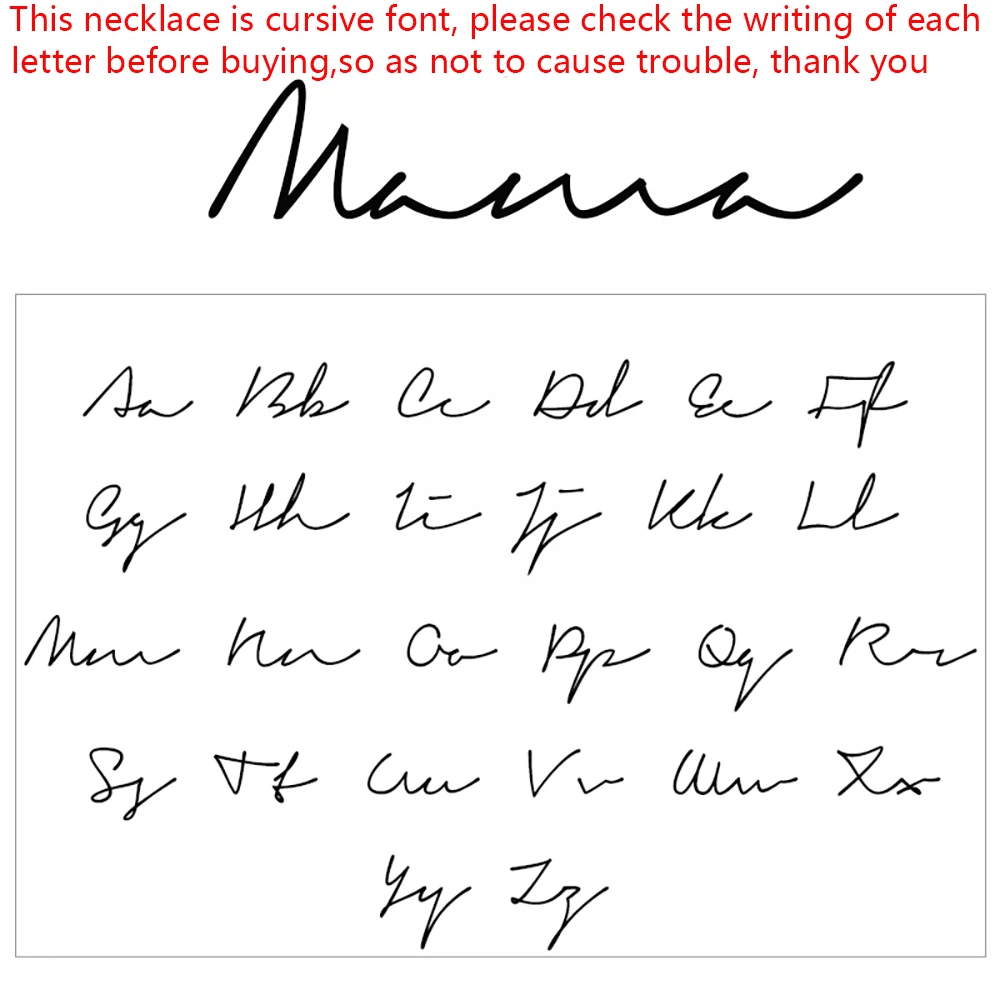 This necklace is cursive font, please check the writing of each
letter before buying,so as not to cause trouble, thank you
Mama
Aa Bb Cc Dd Ee Ff
Gg Hh Ii Jj Kk Ll
Mm Nn Oo Pp Qq Rr
Ss Tt Uu Vv Ww Xx
Yy Zz